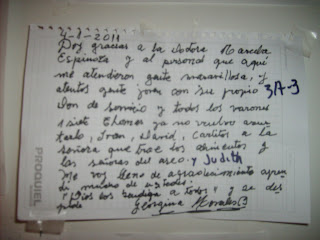 4-1-2011
Doy gracias a la doctora Marcela
Espinoza y al personal que aquí
me atendieron gente maravillosa, y
atentos gente joven con su propio 3A-3
Don de servicio y todos los varones
ya no vuelvo
Ivan, David, Carlitos a la
señora que trae los alimentos y
las señoras del aseo. y Judith
Me voy lleno de agradecimiento
de ustedes.
"Dios los bendiga a todos" y se des
pide Georgina Morales
PROQUIEL